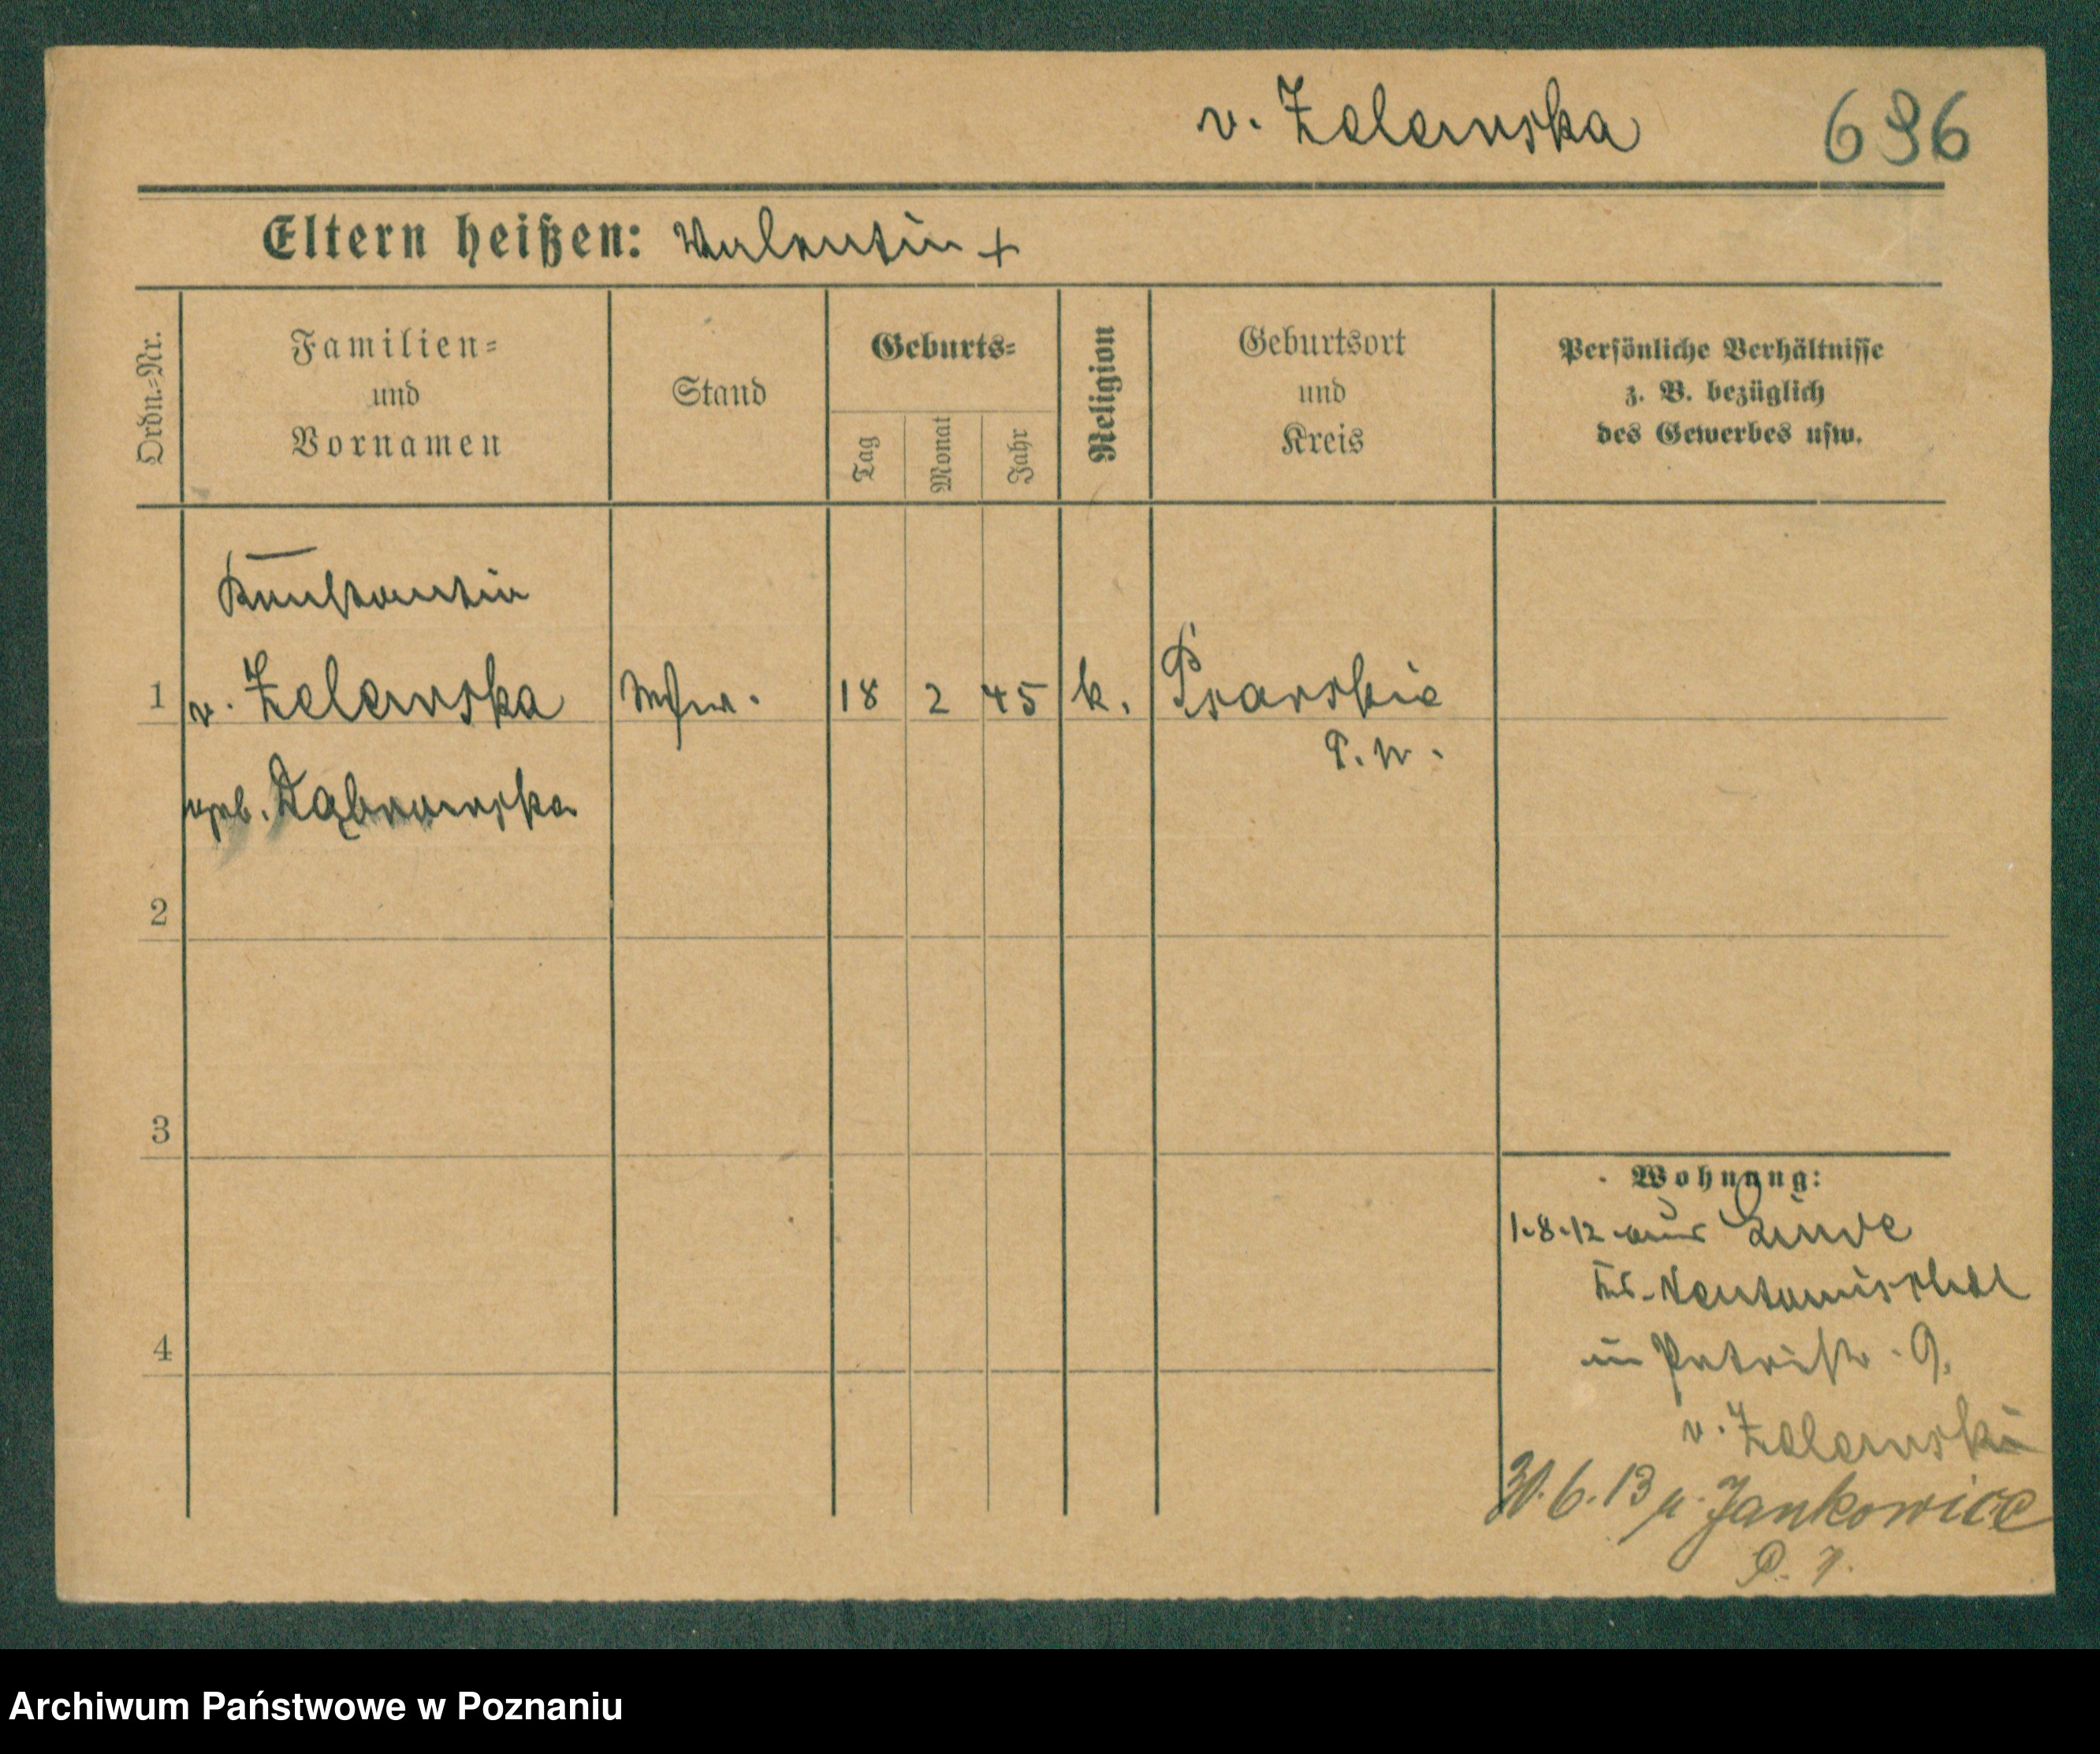 v. Zelewska 696
Eltern heißen: Valentin +
Ordn.=Nr.
Familien=
und
Vornamen
Stand
Geburts=
Tag
Monat
Jahr
Religion
Geburtsort
und
Kreis
Persönliche Verhältnisse
z. B. bezüglich
des Gewerbes usw.
Konstantin
1 v. Zelewska Wwe. 18 2 45 k. Psarskie
P. W.
geb. Dąbrowska
2
3
4
Wohnung:
1.8.12 aus Linde
Kr. Neutomischel
in Patristr. 9.
v. Zelewski
30.6.13 n. Jankowice
P.